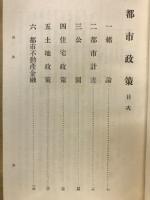 都市政策 目次
一 緒論
二 都市計畫
三 公園
四 住宅政策
五 土地政策
六 都市不動産金融